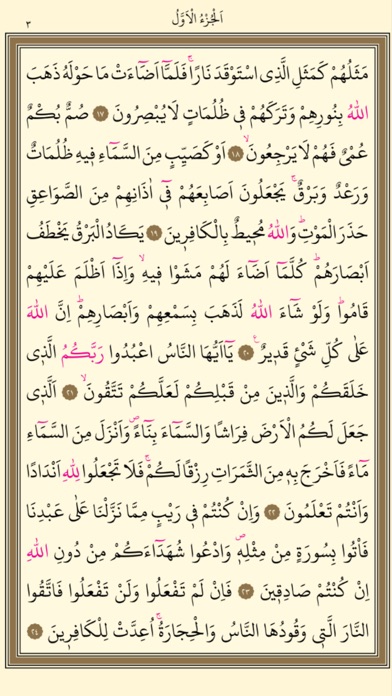 اَلْجُزْءُ الْاَوَّلُ
٣
مَثَلُهُمْ كَمَثَلِ الَّذِى اسْتَوْقَدَ نَارًاۚ فَلَمَّٓا اَضَٓاءَتْ مَا حَوْلَهُ ذَهَبَ
اللّٰهُ بِنُورِهِمْ وَتَرَكَهُمْ فٖى ظُلُمَاتٍ لَا يُبْصِرُونَ ﴿١٧﴾ صُمٌّ بُكْمٌ
عُمْىٌ فَهُمْ لَا يَرْجِعُونَۙ ﴿١٨﴾ اَوْ كَصَيِّبٍ مِنَ السَّمَٓاءِ فٖيهِ ظُلُمَاتٌ
وَرَعْدٌ وَبَرْقٌۚ يَجْعَلُونَ اَصَابِعَهُمْ فٖٓى اٰذَانِهِمْ مِنَ الصَّوَاعِقِ
حَذَرَ الْمَوْتِؕ وَاللّٰهُ مُحٖيطٌ بِالْكَافِرٖينَ ﴿١٩﴾ يَكَادُ الْبَرْقُ يَخْطَفُ
اَبْصَارَهُمْؕ كُلَّمَٓا اَضَٓاءَ لَهُمْ مَشَوْا فٖيهِۙ وَاِذَٓا اَظْلَمَ عَلَيْهِمْ
قَامُواؕ وَلَوْ شَٓاءَ اللّٰهُ لَذَهَبَ بِسَمْعِهِمْ وَاَبْصَارِهِمْؕ اِنَّ اللّٰهَ
عَلٰى كُلِّ شَىْءٍ قَدٖيرٌۚ ﴿٢٠﴾ يَٓا اَيُّهَا النَّاسُ اعْبُدُوا رَبَّكُمُ الَّذٖى
خَلَقَكُمْ وَالَّذٖينَ مِنْ قَبْلِكُمْ لَعَلَّكُمْ تَتَّقُونَۙ ﴿٢١﴾ اَلَّذٖى
جَعَلَ لَكُمُ الْاَرْضَ فِرَاشًا وَالسَّمَٓاءَ بِنَٓاءًࣕ وَاَنْزَلَ مِنَ السَّمَٓاءِ
مَٓاءً فَاَخْرَجَ بِهٖ مِنَ الثَّمَرَاتِ رِزْقًا لَكُمْۚ فَلَا تَجْعَلُوا لِلّٰهِ اَنْدَادًا
وَاَنْتُمْ تَعْلَمُونَ ﴿٢٢﴾ وَاِنْ كُنْتُمْ فٖى رَيْبٍ مِمَّا نَزَّلْنَا عَلٰى عَبْدِنَا
فَاْتُوا بِسُورَةٍ مِنْ مِثْلِهٖࣕ وَادْعُوا شُهَدَٓاءَكُمْ مِنْ دُونِ اللّٰهِ
اِنْ كُنْتُمْ صَادِقٖينَ ﴿٢٣﴾ فَاِنْ لَمْ تَفْعَلُوا وَلَنْ تَفْعَلُوا فَاتَّقُوا
النَّارَ الَّتٖى وَقُودُهَا النَّاسُ وَالْحِجَارَةُۚ اُعِدَّتْ لِلْكَافِرٖينَ ﴿٢٤﴾